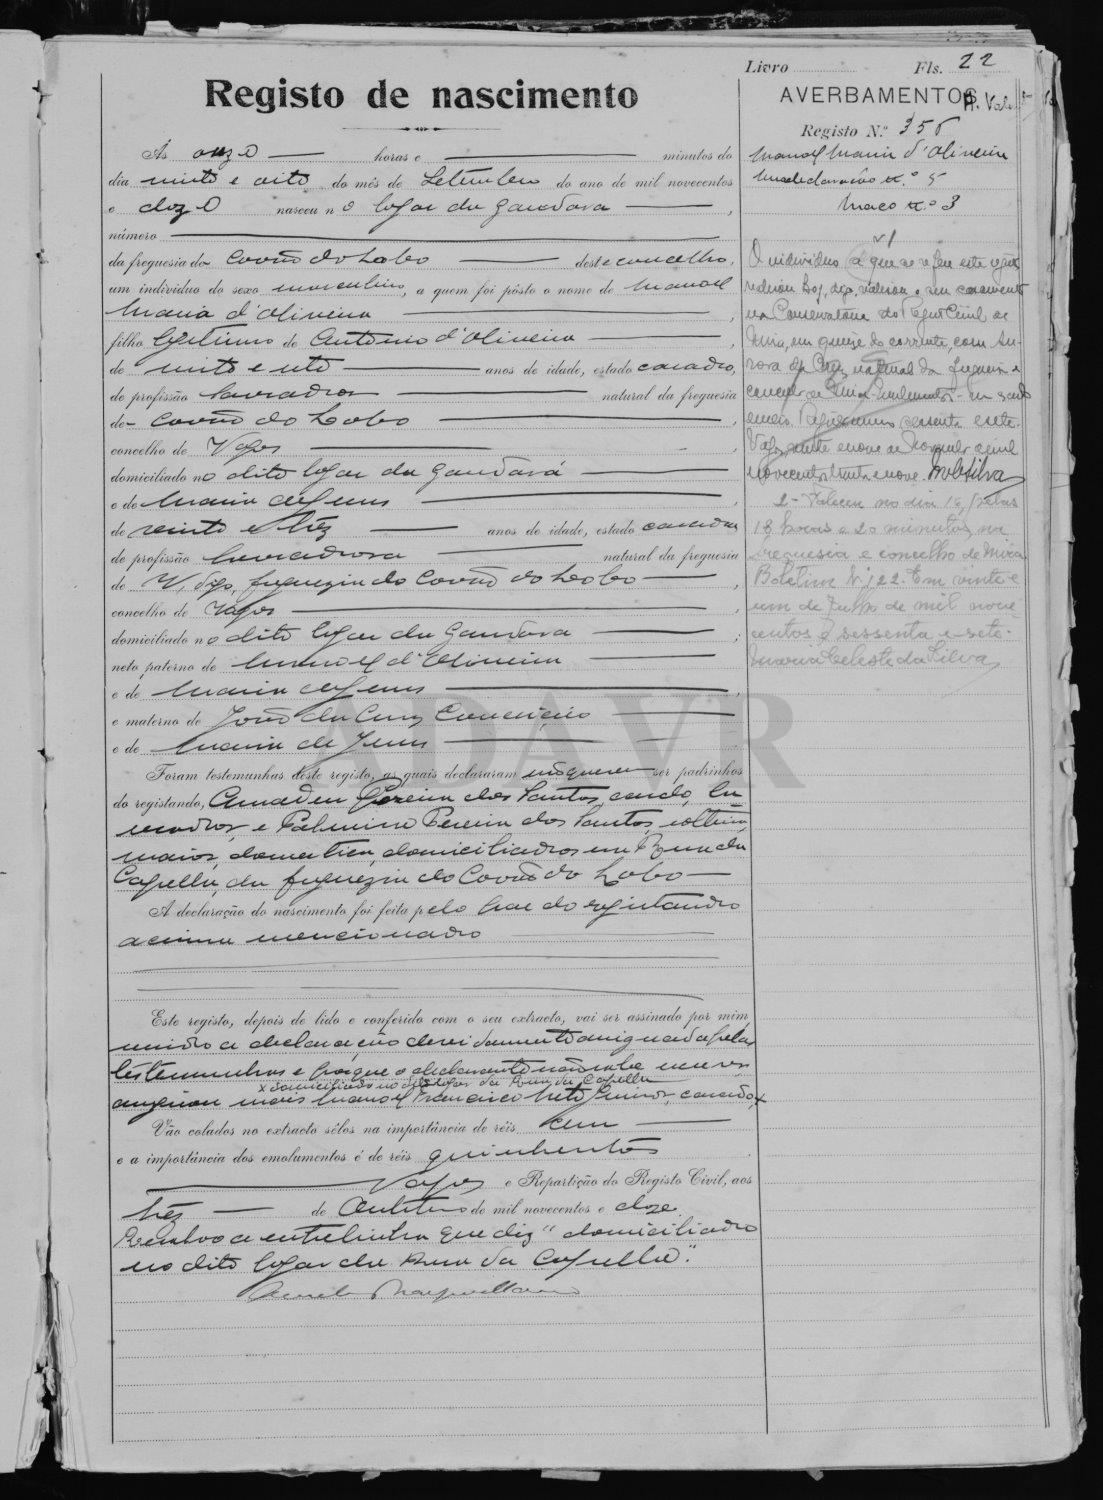 Livro Fls. 22
Registo de nascimento
AVERBAMENTOS
Registo N.º 356
Manoel Maria d'Oliveira
declaração n.º 5
Maço n.º 3
Ás onze horas e minutos do
dia vinte e oito do mês de Setembro do ano de mil novecentos
e doze nasceu no logar da Gandara,
número
da freguesia do Covão do Lobo deste concelho,
um individuo do sexo masculino, a quem foi pôsto o nome de Manoel
Maria d'Oliveira,
filho legitimo de Antonio d'Oliveira,
de vinte e oito anos de idade, estado casado,
de profissão lavrador natural da freguesia
de Covão do Lobo,
concelho de Vagos
domiciliado no dito logar da Gandara
e de Maria de Jesus,
de vinte e três anos de idade, estado casada
de profissão lavradora natural da freguesia
de V, digo, freguezia do Covão do Lobo,
concelho de Vagos,
domiciliado no dito logar da Gandara;
neto paterno de Manoel d'Oliveira
e de Maria de Jesus,
e materno de João da Cruz
e de Maria de Jesus
Foram testemunhas deste registo, as quais declararam não querer ser padrinhos
do registando, Amadeu Pereira dos Santos, casado, la
vrador, e Palmira Pereira dos Santos, solteira,
maior, domestica, domiciliados em Rua da
Capella, da freguezia do Covão do Lobo
A declaração do nascimento foi feita pelo pae do registando
acima mencionado
Este registo, depois de lido e conferido com o seu extracto, vai ser assinado por mim
unido a declaração devidamente assignada pelas
testemunhas e porque o declarante não sabe escrever
x domiciliado no dito logar da Rua da Capella
assignou mais Manoel Francisco Neto Junior, casado, x
Vão colados no extracto sêlos na importância de réis cem
e a importância dos emolumentos é de réis quinhentos
Vagos e Repartição do Registo Civil, aos
três de Outubro de mil novecentos e doze.
Resalvo a entrelinha que diz "domiciliado
no dito logar da Rua da Capella".
1
O individuo a que se refere este registo
celebrou hoj, digo, celebrou o seu casamento
na Conservatória do Registo Civil de
Mira, em quinze do corrente, com Au-
rora da Cruz natural da freguesia e
concelho de Mira.
Vagos, vinte e nove de
novecentos trinta e nove.
2 - Faleceu no dia 19, pelas
18 horas e 20 minutos, na
freguesia e concelho de Mira
Boletim N.º 122. Em vinte e
um de Julho de mil nove
centos e sessenta e sete.
Maria Celeste da Silva
ADAVR